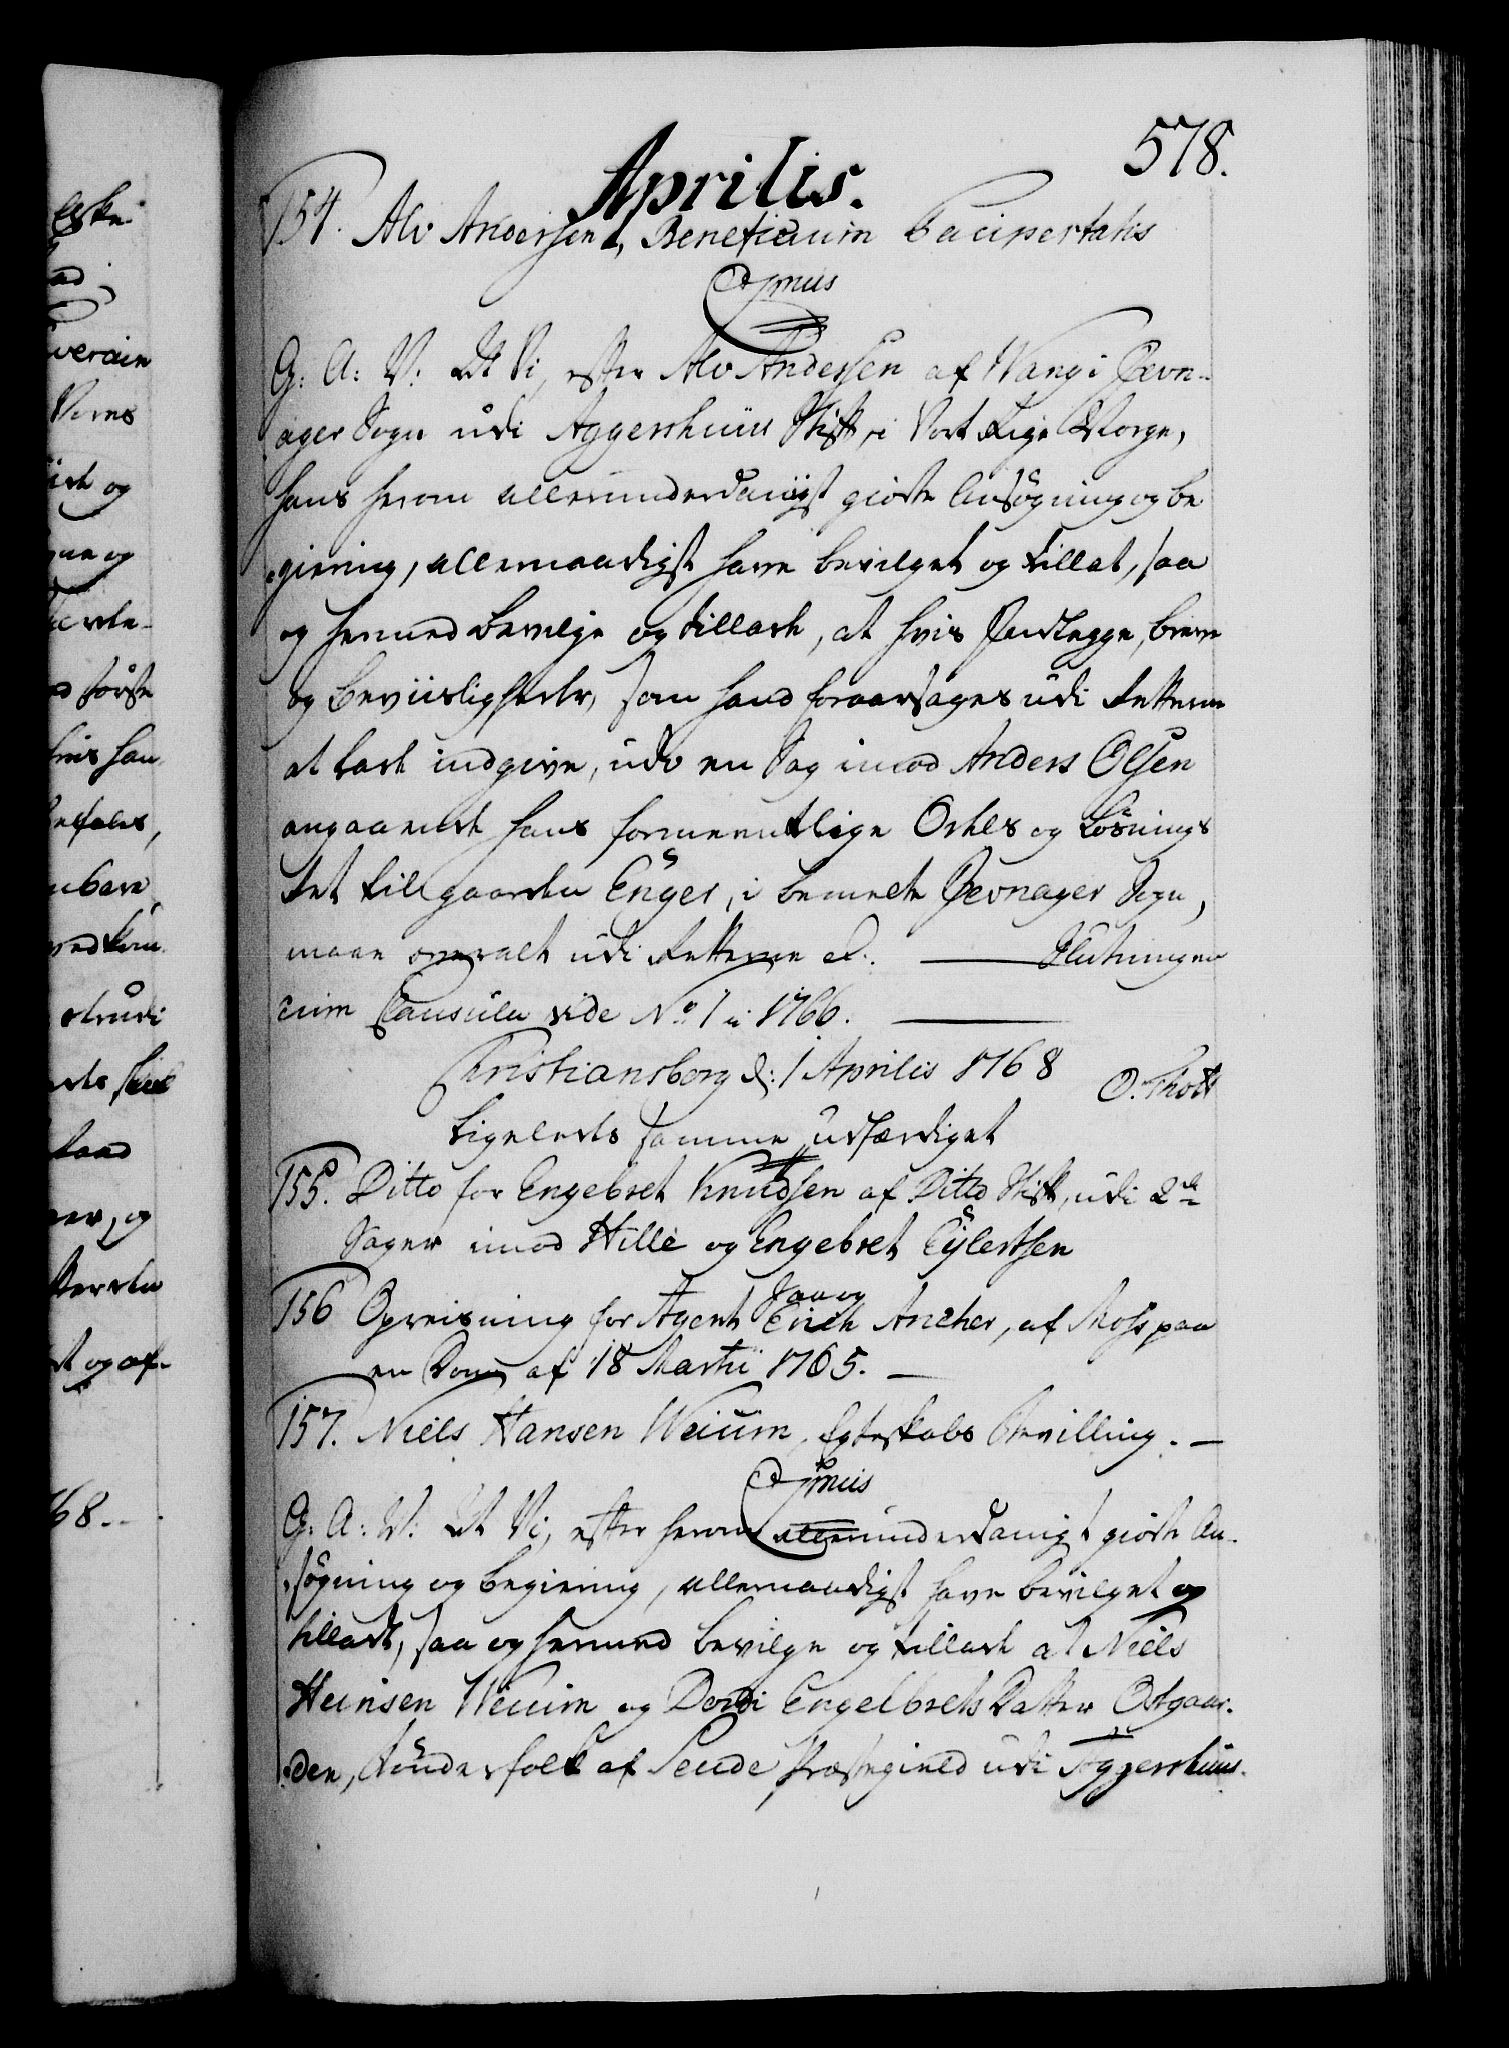 578.
Aprilis.
154. Alv Andersen, Beneficium Paupertatis
Gratis
G: A: V: At Vi, efter Alv Andersen af Wang i Jevn-
ager Sogn udi Aggershuus Stift, i Vort Rige Norge,
hans herom allerunderdanigst giorte Ansögning og be
giering, allernaadigst have bevilget og tilladt, saa
og hermed bevilge og tillade, at hvis Indlegge, breve
og Beviisligheder, som hand foraarsages udi Retterne
at lade indgive, udi en Sag imod Anders Olsen
angaaende hans formeentlige Odels og Lösnings
Ret til gaarden Enger, i bemelte Jevnager Sogn,
maae overalt udi Retterne etc. Slutningen
cum Clausula vide No 1 i 1766.
Christiansborg d: 1 Aprilis 1768
O. Thott
Ligeledes samme udfærdiget
155. Ditto for Engebret Knudsen af Ditto Stift, udi 2de
Sager imod Hille og Engebret Eylertsen
156 Opreisning for Agent Jaa og Erich Ancher, af Moss paa
en Dom af 18 Martii 1765.
157. Niels Hansen Weium, Egteskabs Bevilling.
Gratis
G: A: V: At Vi, efter herom allerunderdanigst giorte An-
sögning og begiering, allernaadigst have bevilget og
tilladt, saa og hermed bevilge og tillade at Niels
Hansen Weium og Dordi Engelbrets Datter Ostgaar-
den, Bönderfolk af Lende Præstegield udi Aggershuus-